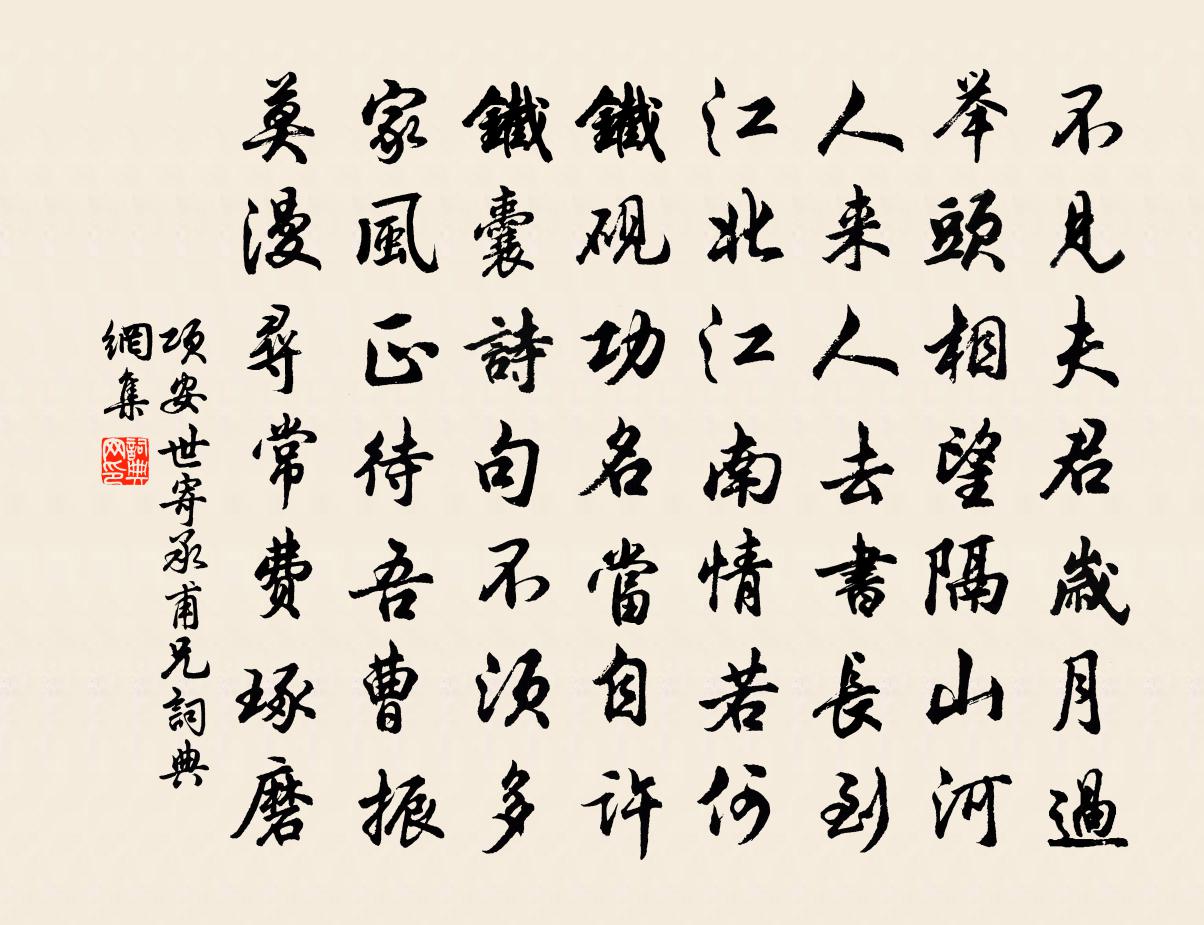 不見夫君歲月過
举頭相望隔山河
人来人去書長到
江北江南情若何
鐵硯功名當自许
鐵囊詩句不須多
家風正待吾曹振
莫漫尋常費琢磨
項安世寄承甫兄詞典
網集
詞典
网印